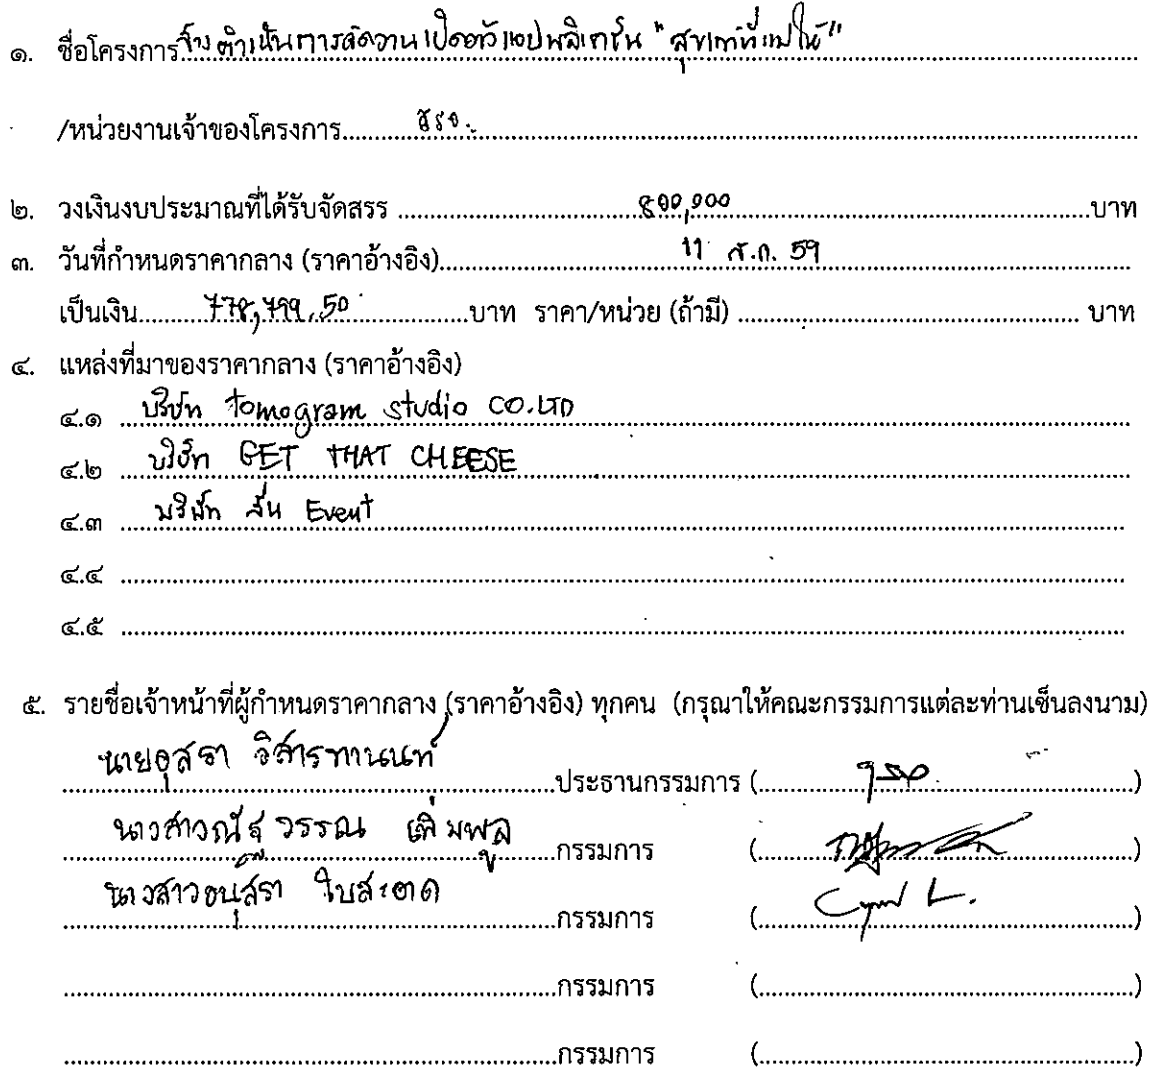 ๑. ชื่อโครงการ จ้างดำเนินการจัดงานเปิดตัวแอปพลิเคชัน "สุขเท่าที่แม่ให้"
/หน่วยงานเจ้าของโครงการ
๒. วงเงินงบประมาณที่ได้รับจัดสรร 800,000 บาท
๓. วันที่กำหนดราคากลาง (ราคาอ้างอิง) 11 ส.ค. 59
เป็นเงิน 778,799.50 บาท ราคา/หน่วย (ถ้ามี) บาท
๔. แหล่งที่มาของราคากลาง (ราคาอ้างอิง)
๔.๑ บริษัท tomogram studio CO.LTD
๔.๒ บริษัท GET THAT CHEESE
๔.๓ บริษัท สั้น Event
๔.๔
๔.๕
๕. รายชื่อเจ้าหน้าที่ผู้กำหนดราคากลาง (ราคาอ้างอิง) ทุกคน (กรุณาให้คณะกรรมการแต่ละท่านเซ็นลงนาม)
นายอุสรา วิสารทานนท์ ประธานกรรมการ ( )
นางสาวณัฐวรรณ เติมพูล กรรมการ ( )
นางสาวอนุสรา ใบสะอาด กรรมการ ( )
กรรมการ ( )
กรรมการ ( )